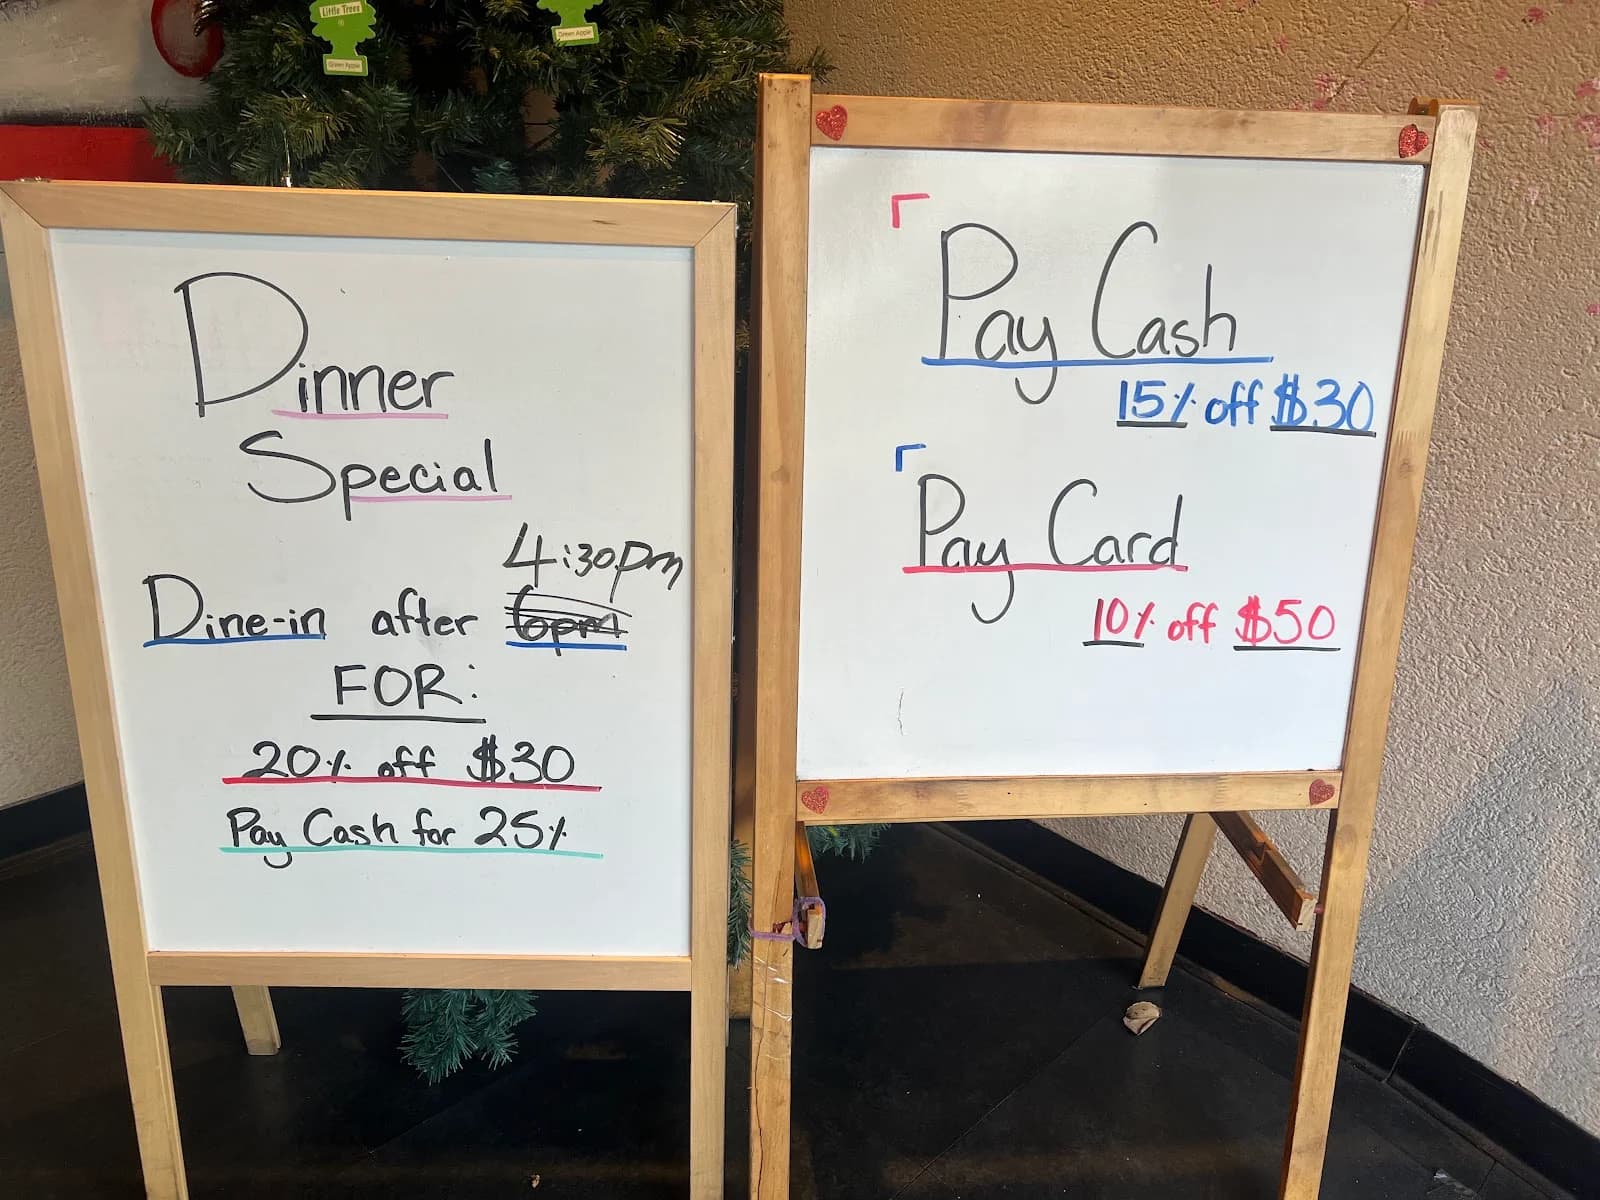 Little Trees
Green Apple
Green Apple
Dinner
Special
4:30pm
Dine-in after 6pm
FOR:
20% off $30
Pay Cash for 25%
Pay Cash
15% off $30
Pay Card
10% off $50